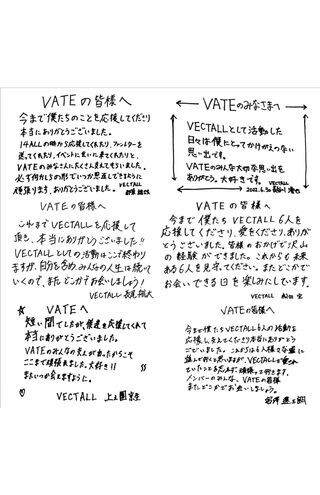 VATEの皆様へ
今まで僕たちのことを応援してくださり
本当にありがとうございました。
14ALLの時から応援してくれたり、ファンレターを
送ってくれたり、イベントに会いに来てくれたりと、
VATEのみなさんにたくさん支えてもらいました。
必ず何かしらの形でいつか恩返しできるように
頑張ります。ありがとうございました。
VECTALL
VATEのみなさまへ
VECTALLとして活動した
日々は僕にとってかけがえのない
思い出です。
VATEのみんなの大切な思い出を
ありがとう。大好きです。
VECTALL
VATEの皆様へ
これまでVECTALLを応援して
頂き、本当にありがとうございました!!
VECTALLとしての活動はここで終わり
ますが、自分を含め、みんなの人生は続いて
いくので、またどこかでお会いしましょう!
VECTALL
VATEの皆様へ
今まで僕たちVECTALL 6人を
応援してくださり、愛をくださり、ありが
とうございました。皆様のおかげで沢山
の経験ができました。これからも未来
ある6人を見守ってください。またどこかで
お会いできる日を楽しみにしています。
VECTALL
VATEへ
短い間でしたが、僕達を応援してくれて
本当にありがとうございました。
VATEのみんなの支えがあったからこそ
ここまで頑張れました。大好き!!
またいつか会えますように。
VECTALL
VATEの皆様へ
今まで僕たちVECTALL6人の活動を
応援し支えてくださり本当にありがとう
ございました。これからは6人様々な道に
進んで行くと思いますが、VECTALLで
いたことを忘れず、頑張って行きます。
メンバーのみんな、VATEの皆様
またどこかでお会いしましょう。